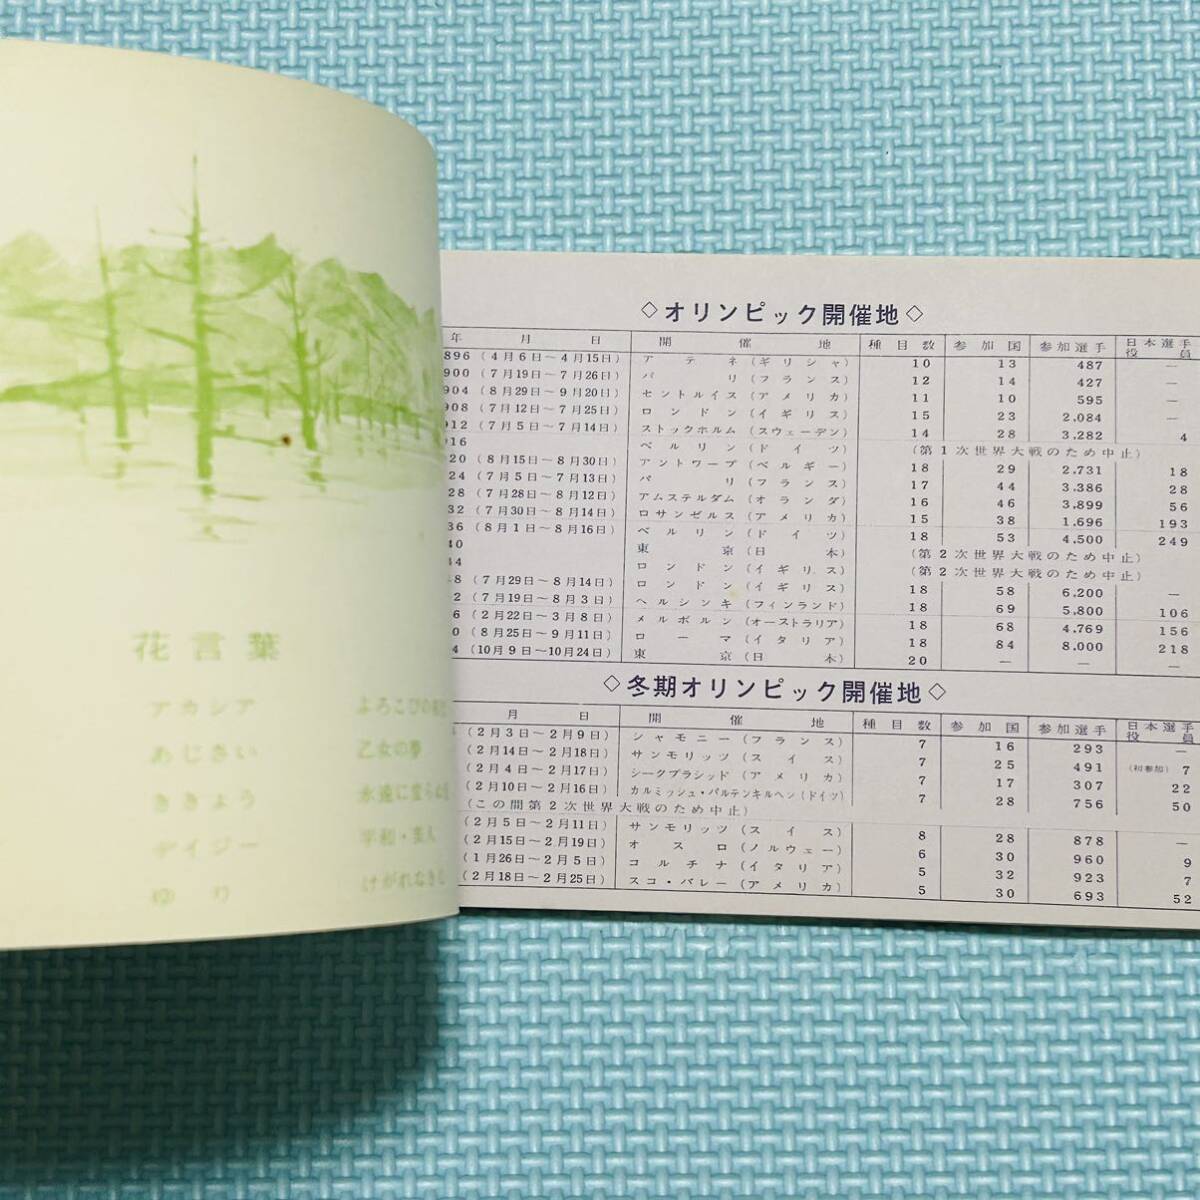 花言葉
アカシア よろこびの
あじさい 乙女の夢
ききょう 永遠に変らぬ
デイジー 平和・美人
ゆり けがれなき
◇オリンピック開催地◇
年 月 日 開催地 種目数 参加国 参加選手 日本選手役員
896 (4月6日～4月15日) アテネ(ギリシャ) 10 13 487 —
900 (7月19日～7月26日) パリ(フランス) 12 14 427 —
904 (8月29日～9月20日) セントルイス(アメリカ) 11 10 595 —
908 (7月12日～7月25日) ロンドン(イギリス) 15 23 2.084 —
912 (7月5日～7月14日) ストックホルム(スウェーデン) 14 28 3.282 4
916 ベルリン(ドイツ) (第1次世界大戦のため中止)
20 (8月15日～8月30日) アントワープ(ベルギー) 18 29 2.731 18
24 (7月5日～7月13日) パリ(フランス) 17 44 3.386 28
28 (7月28日～8月12日) アムステルダム(オランダ) 16 46 3.899 56
32 (7月30日～8月14日) ロサンゼルス(アメリカ) 15 38 1.696 193
36 (8月1日～8月16日) ベルリン(ドイツ) 18 53 4.500 249
40 東京(日本) (第2次世界大戦のため中止)
44 ロンドン(イギリス) (第2次世界大戦のため中止)
8 (7月29日～8月14日) ロンドン(イギリス) 18 58 6.200 —
2 (7月19日～8月3日) ヘルシンキ(フィンランド) 18 69 5.800 106
6 (2月22日～3月8日) メルボルン(オーストラリア) 18 68 4.769 156
0 (8月25日～9月11日) ローマ(イタリア) 18 84 8.000 218
4 (10月9日～10月24日) 東京(日本) 20 — — —
◇冬期オリンピック開催地◇
月 日 開催地 種目数 参加国 参加選手 日本選手役員
(2月3日～2月9日) シャモニー(フランス) 7 16 293 —
(2月14日～2月18日) サンモリッツ(スイス) 7 25 491 (初参加) 7
(2月4日～2月17日) シークプラシッド(アメリカ) 7 17 307 22
(2月10日～2月16日) カルミッシュ・パルテンキルヘン(ドイツ) 7 28 756 50
(この間第2次世界大戦のため中止)
(2月5日～2月11日) サンモリッツ(スイス) 8 28 878 —
(2月15日～2月19日) オスロ(ノルウェー) 6 30 960 9
(1月26日～2月5日) コルチナ(イタリア) 5 32 923 7
(2月18日～2月25日) スコ・バレー(アメリカ) 5 30 693 52